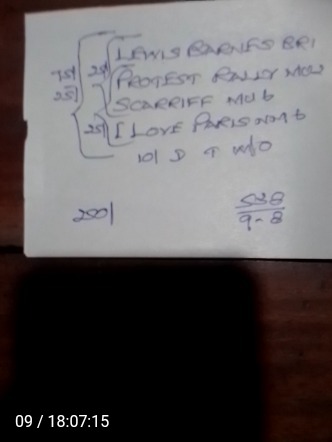 LEWIS BARNES BRI
75/ 25/ PROTEST RALLY MUL
25/ SCARRIFF MU 6
25/ I LOVE PARIS NM 6
10/ D T W/O
200/
538
9-8
09 / 18:07:15